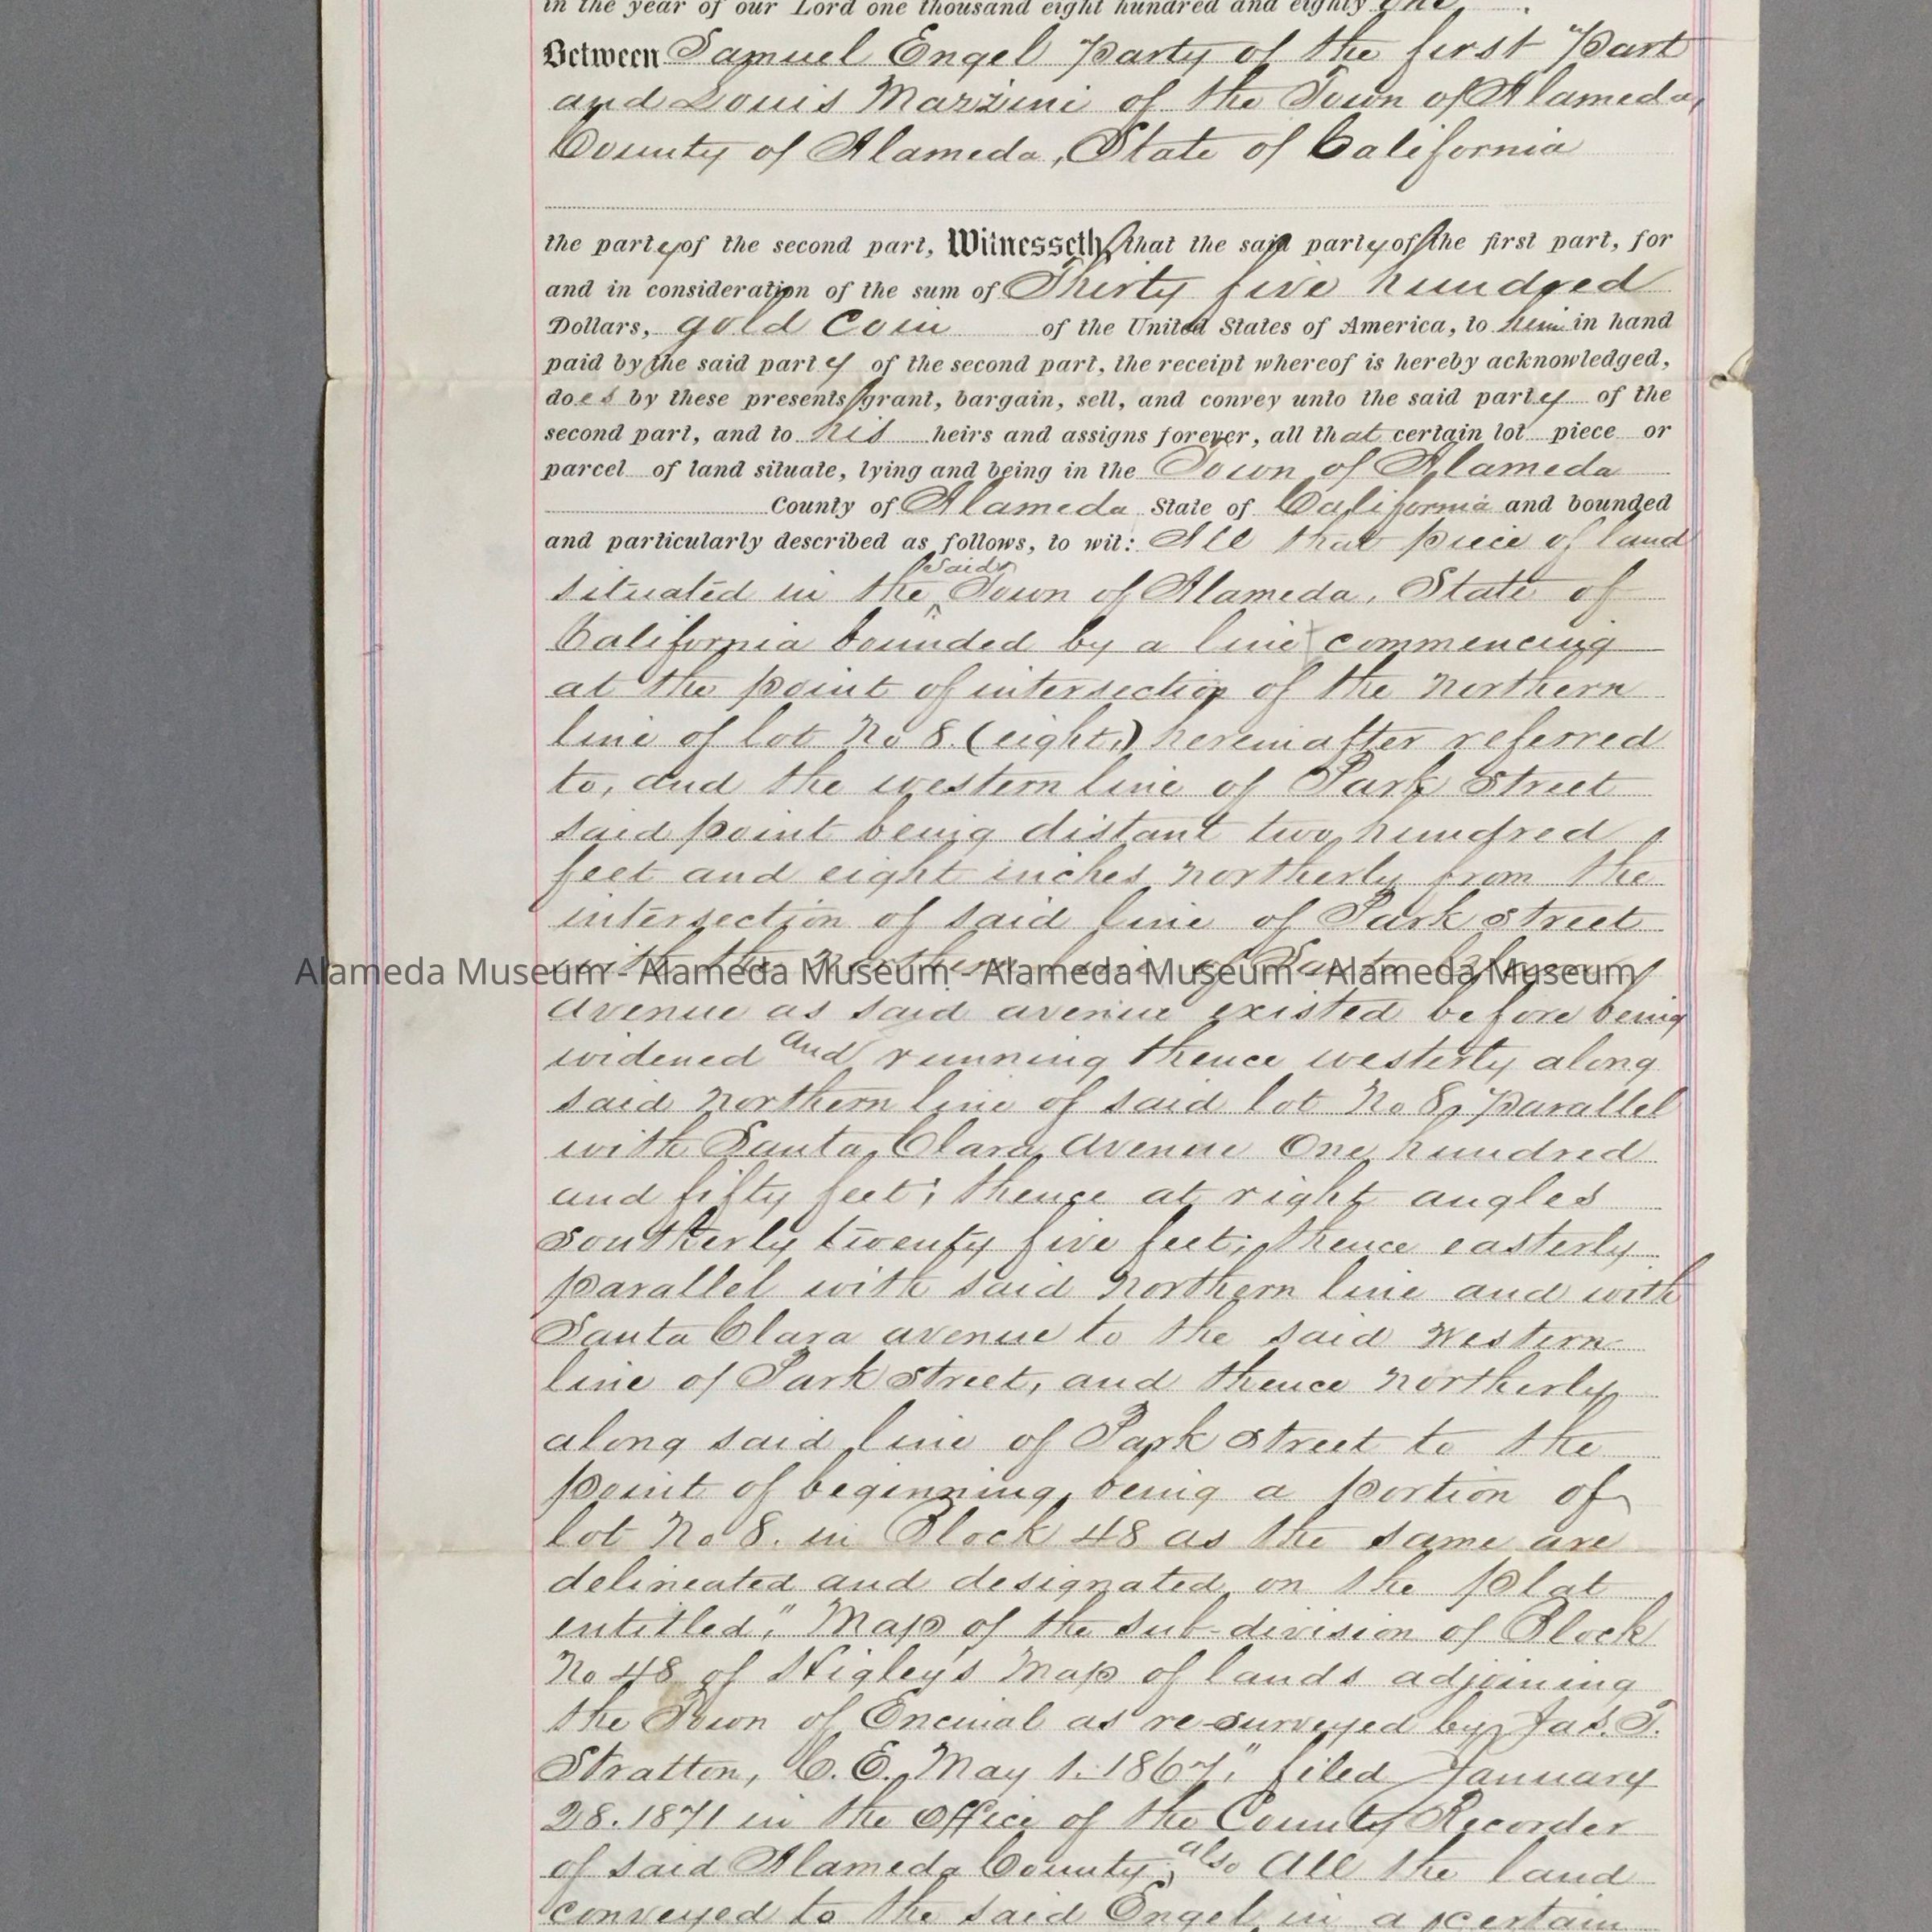 in the year of our Lord one thousand eight hundred and eighty one.
Between Samuel Engel Party of the first Part
and Louis Marzini of the Town of Alameda,
County of Alameda, State of California
the party of the second part, Witnesseth, that the said party of the first part, for
and in consideration of the sum of Thirty five hundred
Dollars, gold Coin of the United States of America, to him in hand
paid by the said party of the second part, the receipt whereof is hereby acknowledged,
does by these presents grant, bargain, sell, and convey unto the said party of the
second part, and to his heirs and assigns forever, all that certain lot piece or
parcel of land situate, lying and being in the Town of Alameda
County of Alameda State of California and bounded
and particularly described as follows, to wit: All that piece of land
situated in the said Town of Alameda, State of
California bounded by a line commencing
at the point of intersection of the northern
line of lot No 8. (eight,) hereinafter referred
to, and the western line of Park Street
said point being distant two hundred
feet and eight inches northerly from the
intersection of said line of Park Street
with the northern line of Santa Clara
Alameda Museum - Alameda Museum - Alameda Museum - Alameda Museum
avenue as said avenue existed before being
widened and running thence westerly along
said northern line of said lot No 8, parallel
with Santa Clara Avenue One hundred
and fifty feet; thence at right angles
southerly twenty five feet; thence easterly
parallel with said northern line and with
Santa Clara avenue to the said western
line of Park Street, and thence northerly
along said line of Park Street to the
point of beginning, being a portion of
lot No 8. in Block 48 as the same are
delineated and designated on the plat
entitled, "Map of the sub-division of Block
No 48 of Higley's Map of lands adjoining
the Town of Encinal as re-surveyed by Jas. T.
Stratton, C. E. May 1. 1867," filed January
28. 1871 in the Office of the County Recorder
of said Alameda County; also All the land
conveyed to the said Engel in a certain